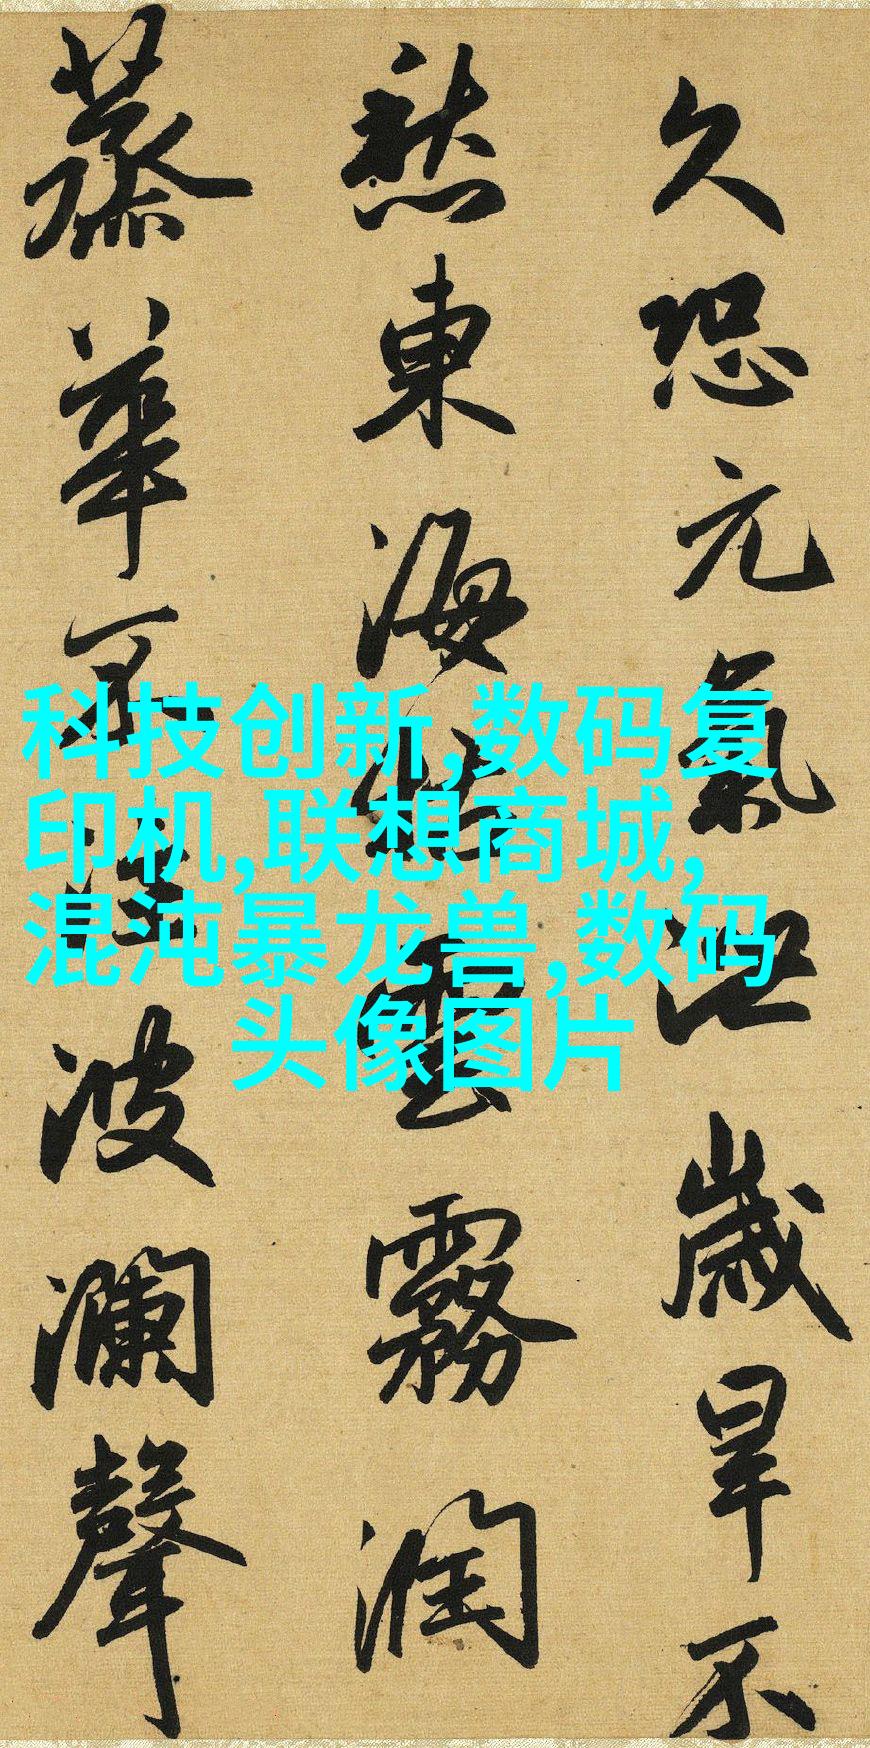 久恐元氣泄歲旱不
愁東海枯雲霧潤
蒸華不注波瀾聲
科技创新,数码复
印机,联想商城,
混沌暴龙兽,数码
头像图片